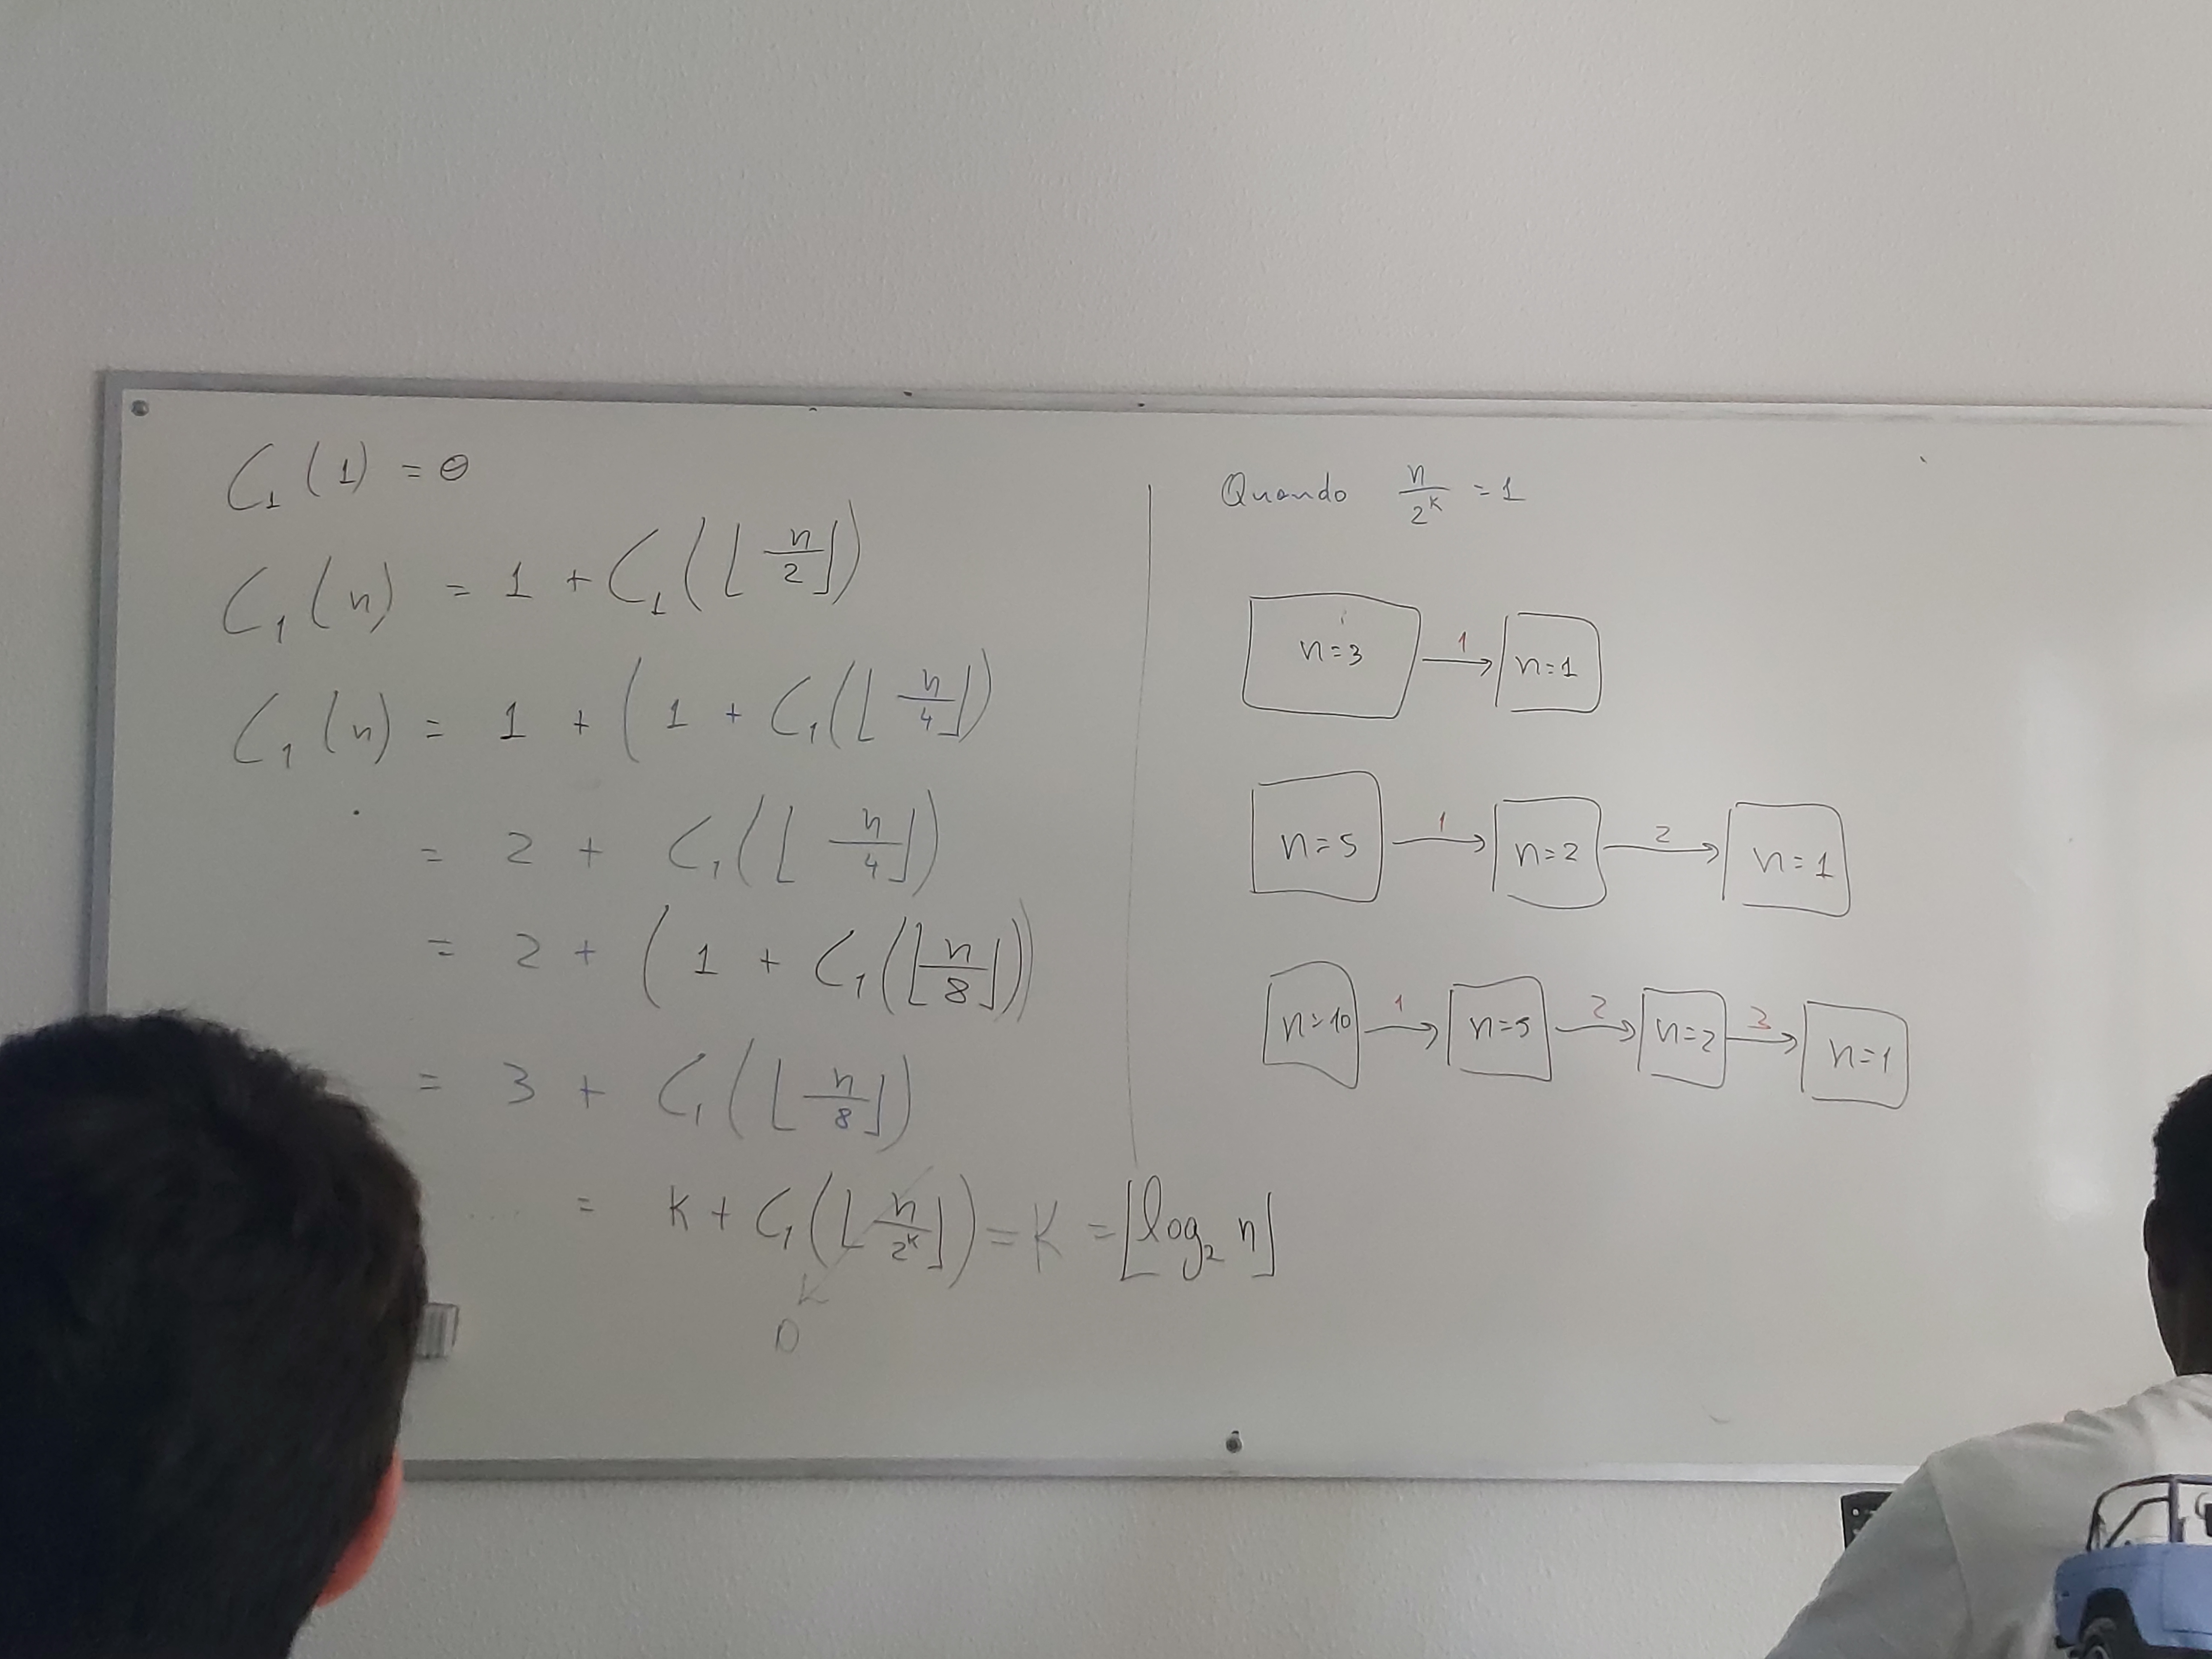 C₁(1) = 0
C₁(n) = 1 + C₁(⌊n/2⌋)
C₁(n) = 1 + (1 + C₁(⌊n/4⌋)
= 2 + C₁(⌊n/4⌋)
= 2 + (1 + C₁(⌊n/8⌋))
= 3 + C₁(⌊n/8⌋)
.... = K + C₁(⌊n/2ᴷ⌋) = K = ⌊log₂ n⌋
0
Quando n/2ᴷ = 1
n=3 1 n=1
n=5 1 n=2 2 n=1
n=10 1 n=5 2 n=2 3 n=1